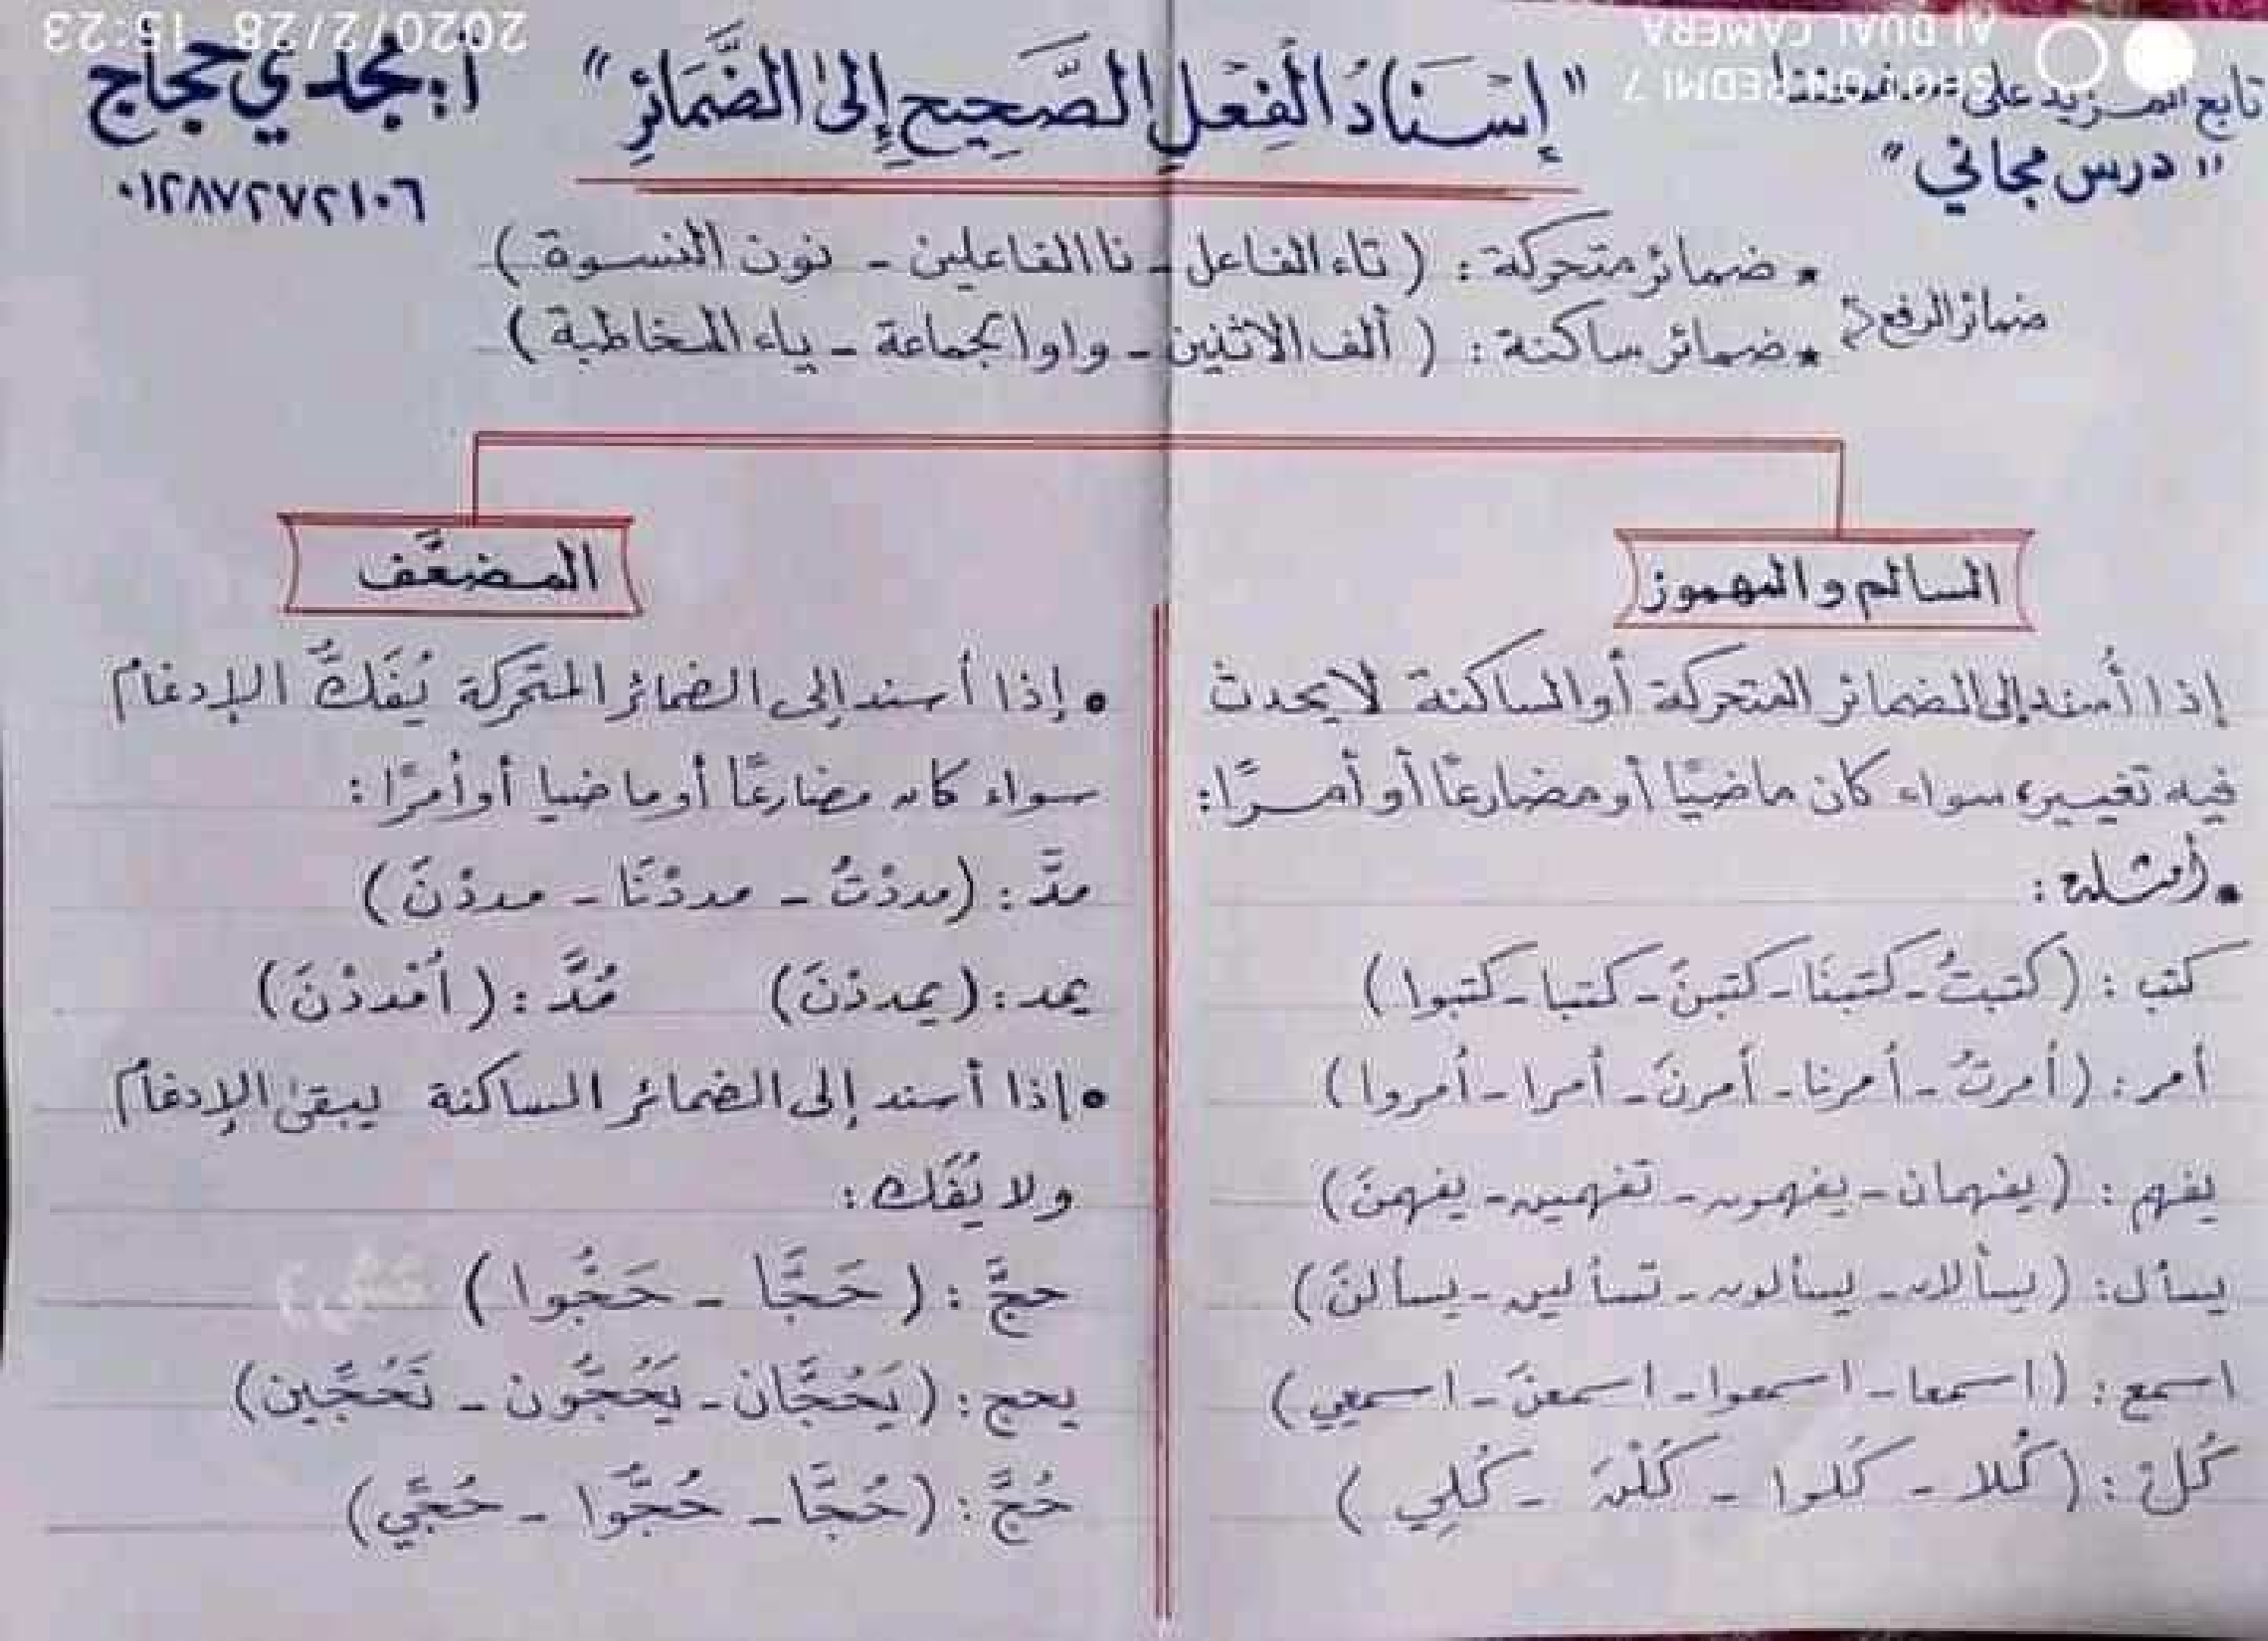 2020/2/28 15:23
SHOT ON REDMI 7
AI DUAL CAMERA
تابع المزيد على
"درس مجاني"
"إِسْنَادُ الْفِعْلِ الصَّحِيحِ إِلىٰ الضَّمَائِرِ"
أ: مجدي حجاج
٠١٢٨٧٢٧٢١٠٦
ضمائر الرفع
* ضمائر متحركة: (تاء الفاعل - نا الفاعلين - نون النسوة)
* ضمائر ساكنة: (ألف الاثنين - واو الجماعة - ياء المخاطبة)
السالم والمهموز
إذا أُسند إلى الضمائر المتحركة أو الساكنة لا يحدث
فيه تغيير، سواء كان ماضيًا أو مضارعًا أو أمرًا:
• أمثلة:
كتب: (كتبتُ - كتبنَا - كتبنَ - كتبا - كتبوا)
أمر: (أمرتُ - أمرنا - أمرنَ - أمرا - أمروا)
يفهم: (يفهمان - يفهمون - تفهمين - يفهمنَ)
يسأل: (يسألان - يسألون - تسألين - يسألنَ)
اسمع: (اسمعا - اسمعوا - اسمعنَ - اسمعي)
كُل: (كُلا - كُلوا - كُلْنَ - كُلِي)
المضعَّف
• إذا أسند إلى الضمائر المتحَركة يُفَكُّ الإدغام
سواء كان مضارعًا أو ماضيا أو أمرًا:
مدَّ: (مددْتُ - مددْنَا - مددْنَ)
يمد: (يمددْنَ) مُدَّ: (اُمْددْنَ)
• إذا أسند إلى الضمائر الساكنة يبقىٰ الإدغام
ولا يُفَك:
حجَّ: (حَجَّا - حَجُّوا)
يحج: (يَحُجَّان - يَحُجُّون - تَحُجِّين)
حُجَّ: (حُجَّا - حُجُّوا - حُجِّي)